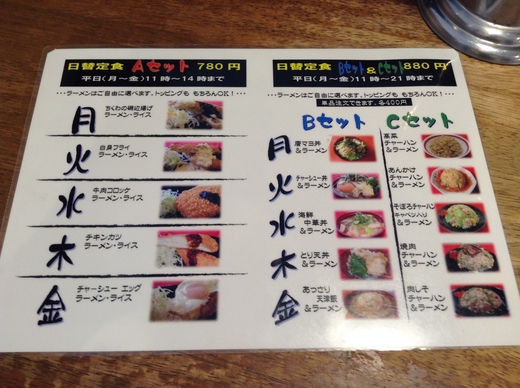 日替定食 Aセット 780円
平日(月～金)11時～14時まで
・・・ラーメンはご自由に選べます。トッピングも もちろんOK!・・・
月
ちくわの磯辺揚げ
ラーメン・ライス
火
白身フライ
ラーメン・ライス
水
牛肉コロッケ
ラーメン・ライス
木
チキンカツ
ラーメン・ライス
金
チャーシュー エッグ
ラーメン・ライス
日替定食 Bセット&Cセット880円
平日(月～金)11時～21時まで
・・・ラーメンはご自由に選べます。トッピングも もちろんOK!・・・
単品注文できます。各400円
Bセット Cセット
月
唐マヨ丼
&ラーメン
高菜
チャーハン
&ラーメン
火
チャーシュー丼
&ラーメン
あんかけ
チャーハン
&ラーメン
水
海鮮
中華丼
&ラーメン
そぼろチャーハン
キャベツ入り
&ラーメン
木
とり天丼
&ラーメン
焼肉
チャーハン
&ラーメン
金
あっさり
天津飯
&ラーメン
肉しそ
チャーハン
&ラーメン